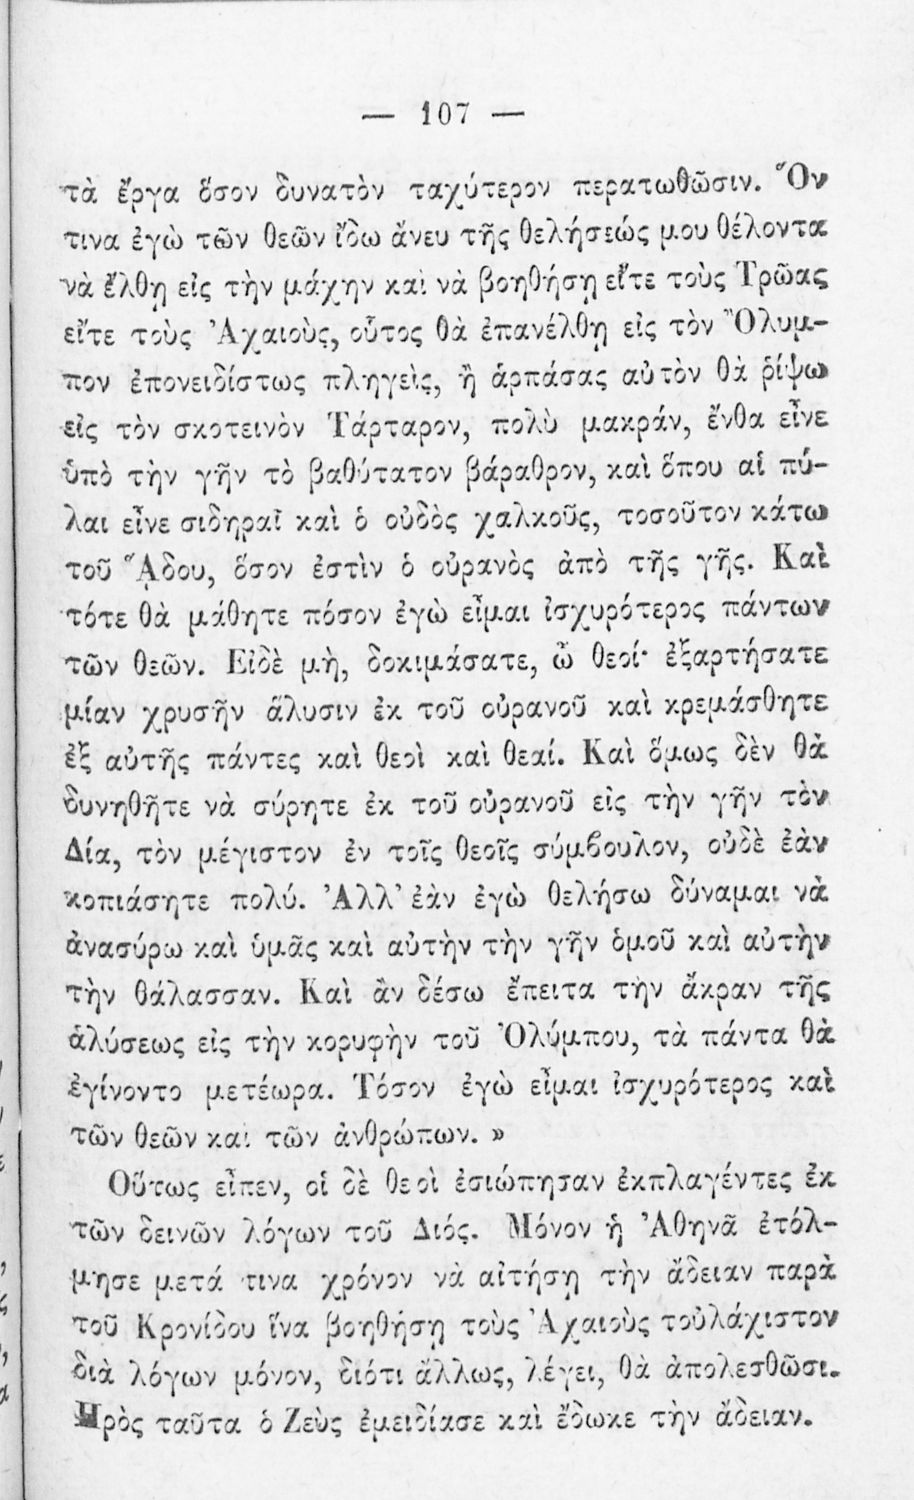 — 107 —
τὰ ἔργα ὅσον δυνατὸν ταχύτερον περατωθῶσιν. Ὅν
τινα ἐγὼ τῶν θεῶν ἴδω ἄνευ τῆς θελήσεώς μου θέλοντα
νὰ ἔλθῃ εἰς τὴν μάχην καὶ νὰ βοηθήσῃ εἴτε τοὺς Τρῶας
εἴτε τοὺς Ἀχαιοὺς, οὗτος θὰ ἐπανέλθῃ εἰς τὸν Ὄλυμ-
πον ἐπονειδίστως πληγεὶς, ἢ ἁρπάσας αὐτὸν θὰ ῥίψω
εἰς τὸν σκοτεινὸν Τάρταρον, πολὺ μακράν, ἔνθα εἶνε
ὑπὸ τὴν γῆν τὸ βαθύτατον βάραθρον, καὶ ὅπου αἱ πύ-
λαι εἶνε σιδηραῖ καὶ ὁ οὐδὸς χαλκοῦς, τοσοῦτον κάτω
τοῦ ᾍδου, ὅσον ἐστὶν ὁ οὐρανὸς ἀπὸ τῆς γῆς. Καὶ
τότε θὰ μάθητε πόσον ἐγὼ εἶμαι ἰσχυρότερος πάντων
τῶν θεῶν. Εἰδὲ μὴ, δοκιμάσατε, ὦ θεοί· ἐξαρτήσατε
μίαν χρυσῆν ἅλυσιν ἐκ τοῦ οὐρανοῦ καὶ κρεμάσθητε
ἐξ αὐτῆς πάντες καὶ θεοὶ καὶ θεαί. Καὶ ὅμως δὲν θὰ
δυνηθῆτε νὰ σύρητε ἐκ τοῦ οὐρανοῦ εἰς τὴν γῆν τὸν
Δία, τὸν μέγιστον ἐν τοῖς θεοῖς σύμβουλον, οὐδὲ ἐὰν
κοπιάσητε πολύ. Ἀλλ’ ἐὰν ἐγὼ θελήσω δύναμαι νὰ
ἀνασύρω καὶ ὑμᾶς καὶ αὐτὴν τὴν γῆν ὁμοῦ καὶ αὐτὴν
τὴν θάλασσαν. Καὶ ἂν δέσω ἔπειτα τὴν ἄκραν τῆς
ἁλύσεως εἰς τὴν κορυφὴν τοῦ Ὀλύμπου, τὰ πάντα θὰ
ἐγίνοντο μετέωρα. Τόσον ἐγὼ εἶμαι ἰσχυρότερος καὶ
τῶν θεῶν καὶ τῶν ἀνθρώπων. »
Οὕτως εἶπεν, οἱ δὲ θεοὶ ἐσιώπησαν ἐκπλαγέντες ἐκ
τῶν δεινῶν λόγων τοῦ Διός. Μόνον ἡ Ἀθηνᾶ ἐτόλ-
μησε μετά τινα χρόνον νὰ αἰτήσῃ τὴν ἄδειαν παρὰ
τοῦ Κρονίδου ἵνα βοηθήσῃ τοὺς Ἀχαιοὺς τοὐλάχιστον
διὰ λόγων μόνον, διότι ἄλλως, λέγει, θὰ ἀπολεσθῶσι.
Πρὸς ταῦτα ὁ Ζεὺς ἐμειδίασε καὶ ἔδωκε τὴν ἄδειαν.